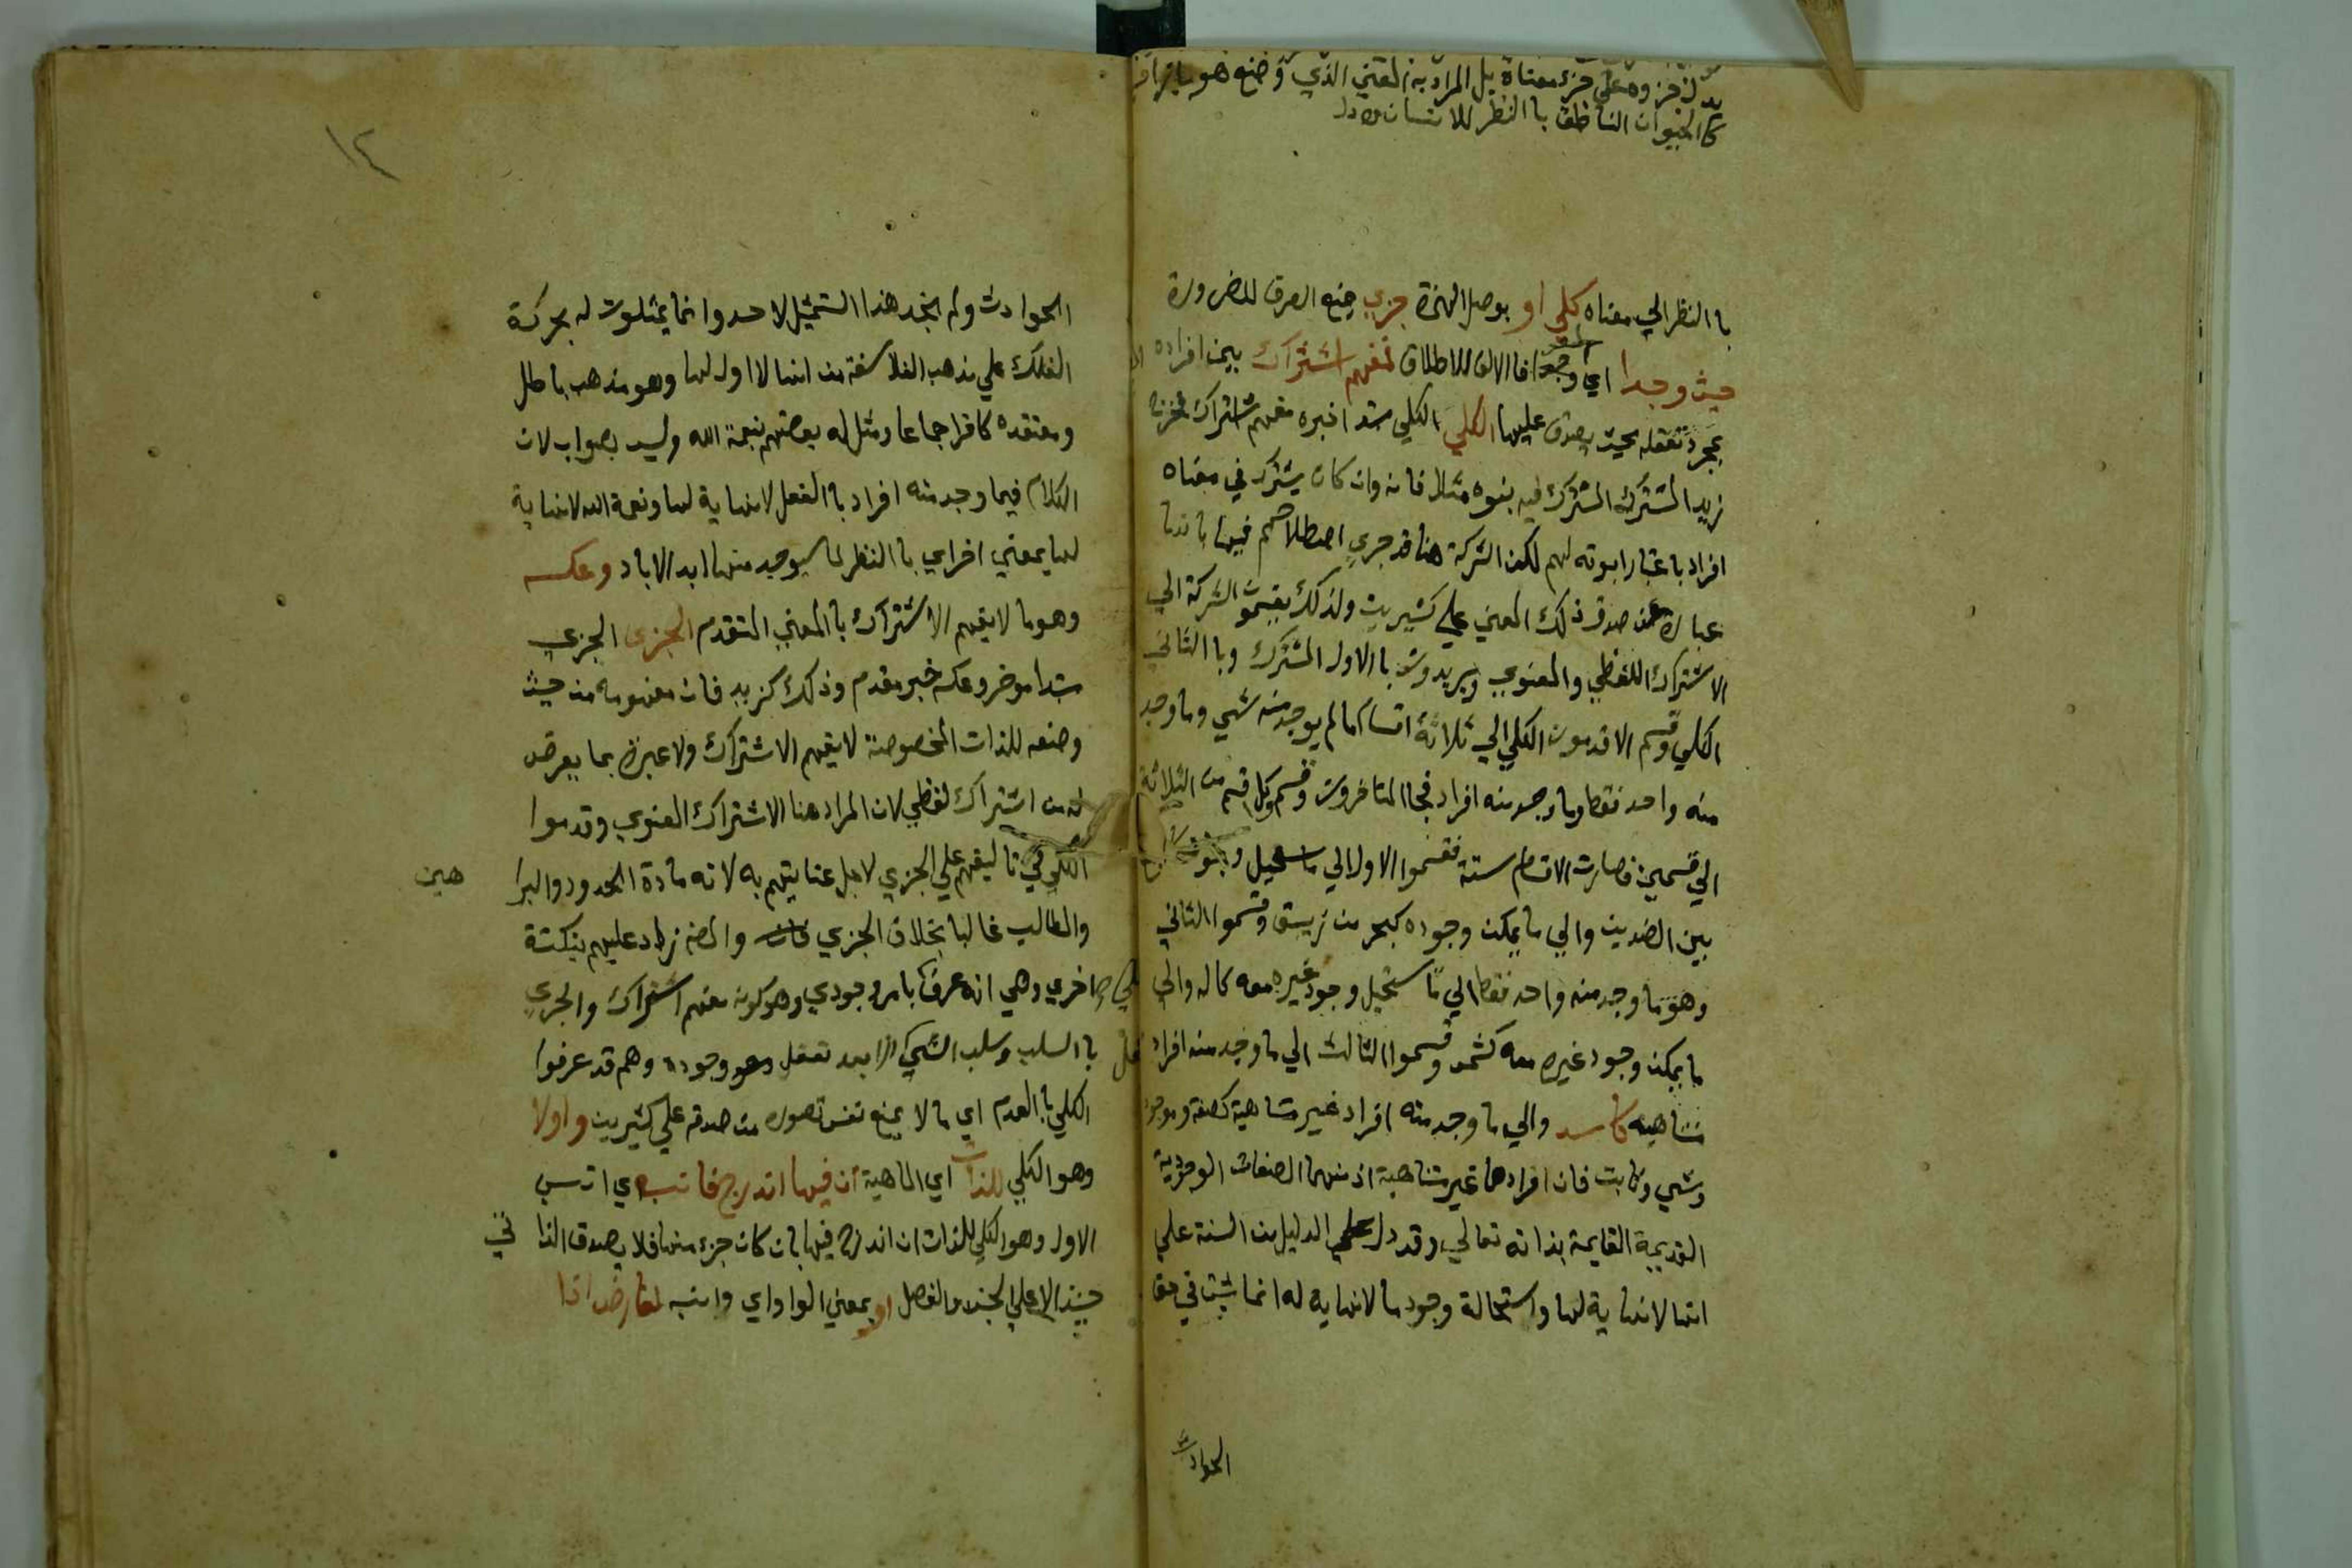 يدل جزوه علي جزء معناه بل المراد به المعني الذي وضع هو بازا
كا الحيوان الناطق با النظر للانسان
با النظر الي معناه كلي او بوصل الهمزة جزي منع الصرف للضرورة
حيث وجدا اي وجد فا الالف للاطلاق فمفهم اشتراك بين افراده
بمجرد تعقله بحيث يصدق عليها الكلي الكلي مبتدا خبره مفهم اشتراك فخرج
زيد المشترك المشترك فيه بنوه مثلا فانه وان كان يشترك في معناه
افراد باعتبار ابوته لهم لكن الشركة هنا قد جري اصطلاحهم فيها بانها
عبارة عن صدق ذلك المعني علي كثيرين ولذلك يقسمون الشركة الي
الاشتراك اللفظي والمعنوي ويريدون با الاول المشترك وبا الثاني
الكلي وقسم الاقدمون الكلي الي ثلاثة اقسام ما لم يوجد منه شي وما وجد
منه واحد فقط وما وجد منه افراد فجا المتاخرون وقسموا كل قسم من الثلاثة
الي قسمين فصارت الاقسام ستة فقسموا الاول الي ما يستحيل وجوده كالجمع
بين الضدين والي ما يمكن وجوده كبحر من زيبق وقسموا الثاني
وهو ما وجد منه واحد فقط الي ما يستحيل وجود غيره معه كاله والي
ما يمكن وجود غيره معه كشمس وقسموا الثالث الي ما وجد منه افراد
متناهية كاسد والي ما وجد منه افراد غير متناهية كصفة وموجود
وشي وثابت فان افرادها غير متناهية اذ منهما الصفات الوجودية
القديمة القايمة بذاته تعالي وقد دل علي الدليل من السنة علي
انها لا نهاية لها واستحالة وجود ما لا نهاية له انما ثبت في حق
الحوادث
١٢
الحوادث ولم اجد هذا التمثيل لاحد وانما يمثلون له بحركة
الفلك علي مذهب الفلاسفة من انها لا اول لها وهو مذهب باطل
ومعتقده كافر اجماعا ومثل له بعضهم بنعمة الله وليس بصواب لان
الكلام فيما وجد منه افراد با الفعل لا نهاية لها ونعمة الله لا نهاية
لها بمعني اخر اي با النظر لما سيوجد منها ابد الاباد وعكسه
وهو ما لا يفهم الاشتراك با المعني المتقدم الجزي الجزي
مبتدا موخر وعكسه خبر مقدم وذلك كزيد فان مفهومه من حيث
وضعه للذات المخصوصة لا يفهم الاشتراك ولا عبرة بما يعرض
له من اشتراك لفظي لان المراد هنا الاشتراك المعنوي وقدموا
الكلي في تاليفهم علي الجزي لاجل عنايتهم به لانه مادة الحدود والبرا هين
والمطالب غالبا بخلاف الجزي والمصنف زاد عليهم بنكتة
اخري وهي انه عرفه بامر وجودي وهو كونه مفهم اشتراك والجزي
با السلب وسلب الشي انما بعد تعقل وجوده وهم قد عرفوا
الكلي با العدم اي ما لا يمنع نفس تصوره من صدقه علي كثيرين واولا
وهو الكلي للذات اي الماهية ان فيها اندرج فانسبه اي انسب
الاول وهو الكلي للذات ان اندرج فيها بان كان جزء منها فلا يصدق الذا تي
حينئذ الا علي الجنس والفصل او بمعني الواو اي وانسبه لعارض اذا